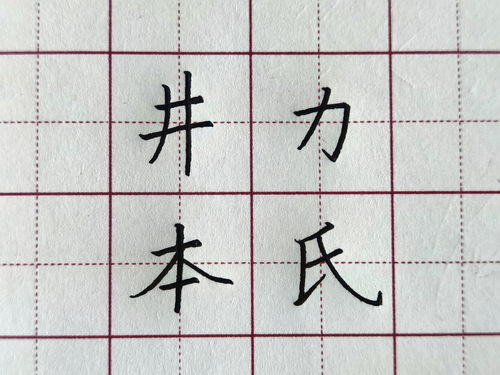 井力
本氏